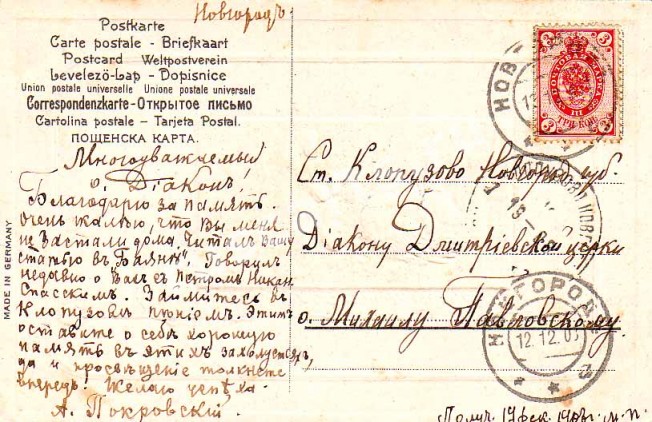 Новгородъ
Postkarte
Carte postale - Briefkaart
Postcard Weltpostverein
Levelezö-Lap - Dopisnice
Union postale universelle Unione postale universale
Correspondenzkarte-Открытое письмо
Cartolina postale - Tarjeta Postal.
ПОЩЕНСКА КАРТА.
Многоуважаемый
о. Дiаконъ!
Благодарю за память.
очень жалѣю, что Вы меня
не застали дома. Читалъ Вашу
статью въ "Баянѣ". Говорилъ
недавно о Васъ съ Петромъ Никан.
Спасскимъ. Займитесь въ
Клопузовѣ Этимъ
оставите о себѣ хорошую
память въ этихъ захолустьяхъ,
да и просвѣщение толкнете
впередъ. Желаю успѣха.
А. Покровскiй.
MADE IN GERMANY
3 3
ПОЧТОВАЯ МАРКА
III
ТРИ КОП.
3 3
НОВ
Ст. Клопузово Новгор. губ.
Дiакону Дмитрiевской церкви
о. Михаилу Павловскому.
НОВГОРОДЪ
12.12.0
Получ. 17 дек.